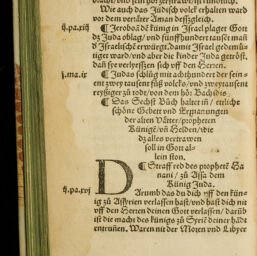 Wie auch das Jüdisch volck erhalten ward
vor dem verräter Aman deßgleich.
ij.pa.xiij ¶ Jeroboā dē künig in Israel plaget Gott
dz Juda oblag/ und fünffhundert tausēt man
d Israhelschē erwürgt. damit Israel gedemü-
tiget ward/ und aber die kinder Juda getröst,
daß sie verlyessen sich uff den Herren.
j.ma.ix ¶ Judas schlüg mit achthundert der sein-
ent zwey tausent füß volcks/ und zweytausent
reysiger zů ydt/ von dem hör Bachidis.
¶ Das Sechst Bůch haltet in/ ettliche
schöne Gebett und Ermanungen
der alten Vätter/propheten
Künigē/vn Helden/wie
dz alles vertrawen
soll in Gott al-
lein ston.
ij.pa.xvj ¶ Straff red des prophetē Ha
nani/ zů Assa dem
Künig Juda.
DArumb das du dich uff den kün-
ig zů Assyrien verlassen hast/ und hast dich nit
uff den Herren deinen Gott verlassen/ darüb
ist die macht des künigs zů Syriē deiner händ
entrunnen. Waren nit der Moren und Libyer